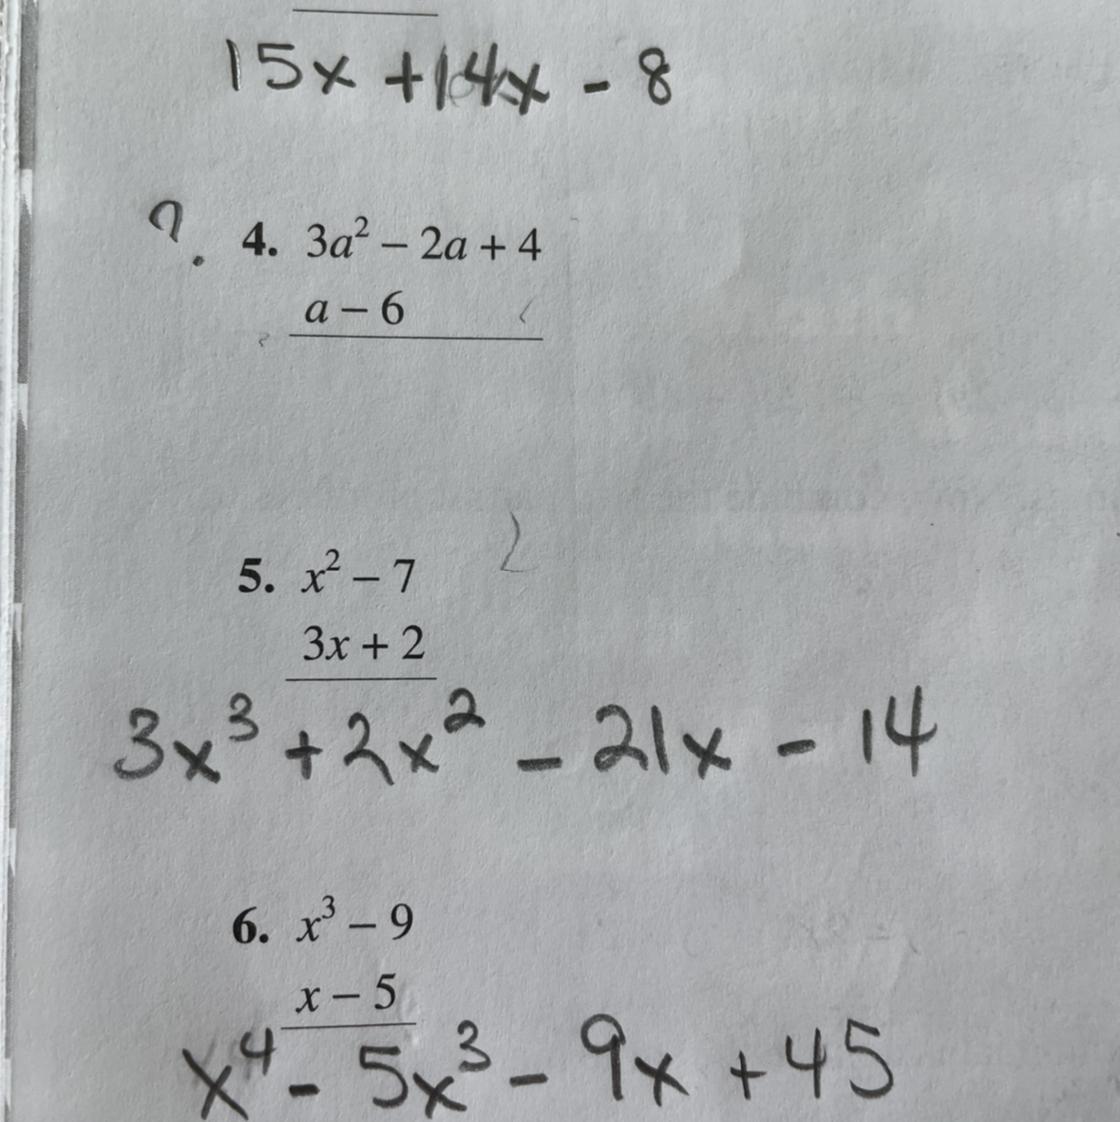 15x + 14x - 8
?
4. 3a² – 2a + 4
a – 6
5. x² – 7
3x + 2
3x³ + 2x² - 21x - 14
6. x³ – 9
x – 5
x⁴ - 5x³ - 9x + 45